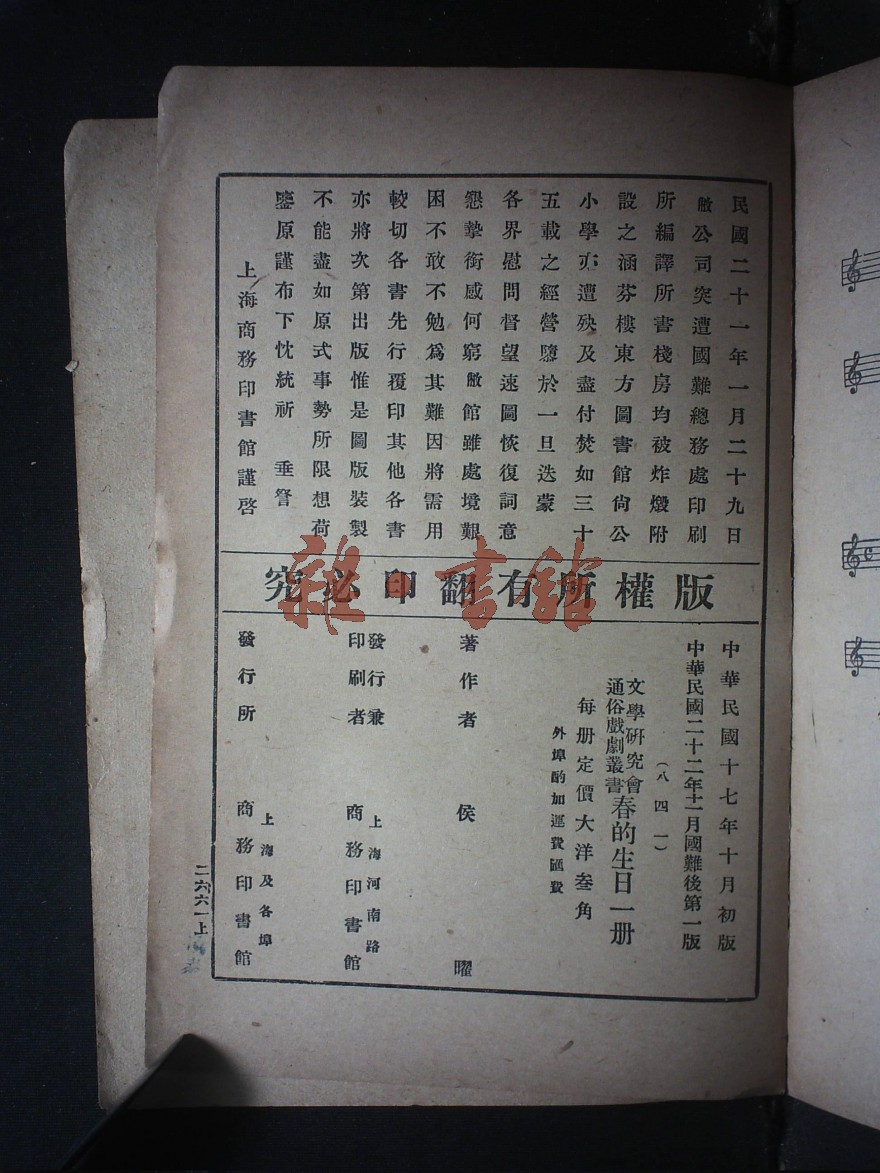 民國二十一年一月二十九日
敝公司突遭國難總務處印刷
所編譯所書棧房均被炸燬附
設之涵芬樓東方圖書館尙公
小學亦遭殃及盡付焚如三十
五載之經營隳於一旦迭蒙
各界慰問督望速圖恢復詞意
懇摯銜感何窮敝館雖處境艱
困不敢不勉爲其難因將需用
較切各書先行覆印其他各書
亦將次第出版惟是圖版裝製
不能盡如原式事勢所限想荷
鑒原謹布下忱統祈 垂詧
上海商務印書館謹啓
版權所有翻印必究
中華民國十七年十月初版
中華民國二十二年十一月國難後第一版
(八四一)
文學研究會
通俗戲劇叢書
春的生日一册
每册定價大洋叁角
外埠酌加運費匯費
著作者 侯曜
發行兼
印刷者
上海河南路
商務印書館
發行所
上海及各埠
商務印書館
二六六一上
雜·書館